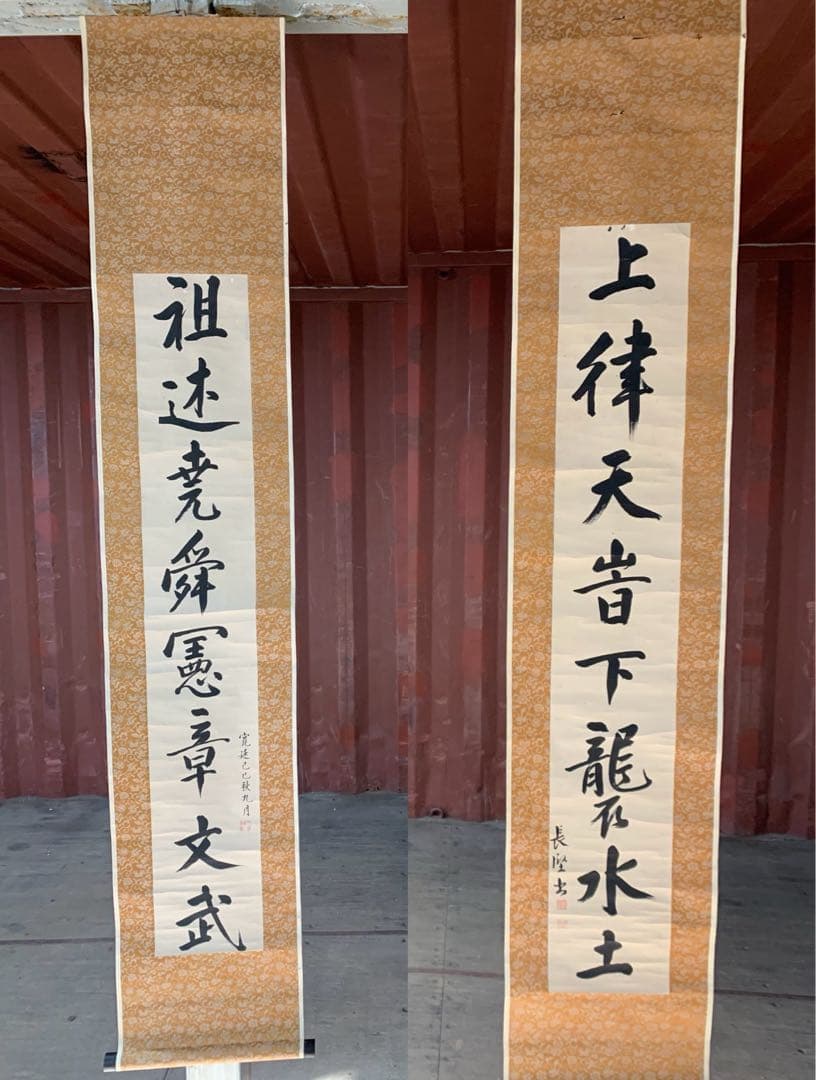 祖述堯舜憲章文武
寛延己巳秋九月
上律天旹下襲水土
長堅書